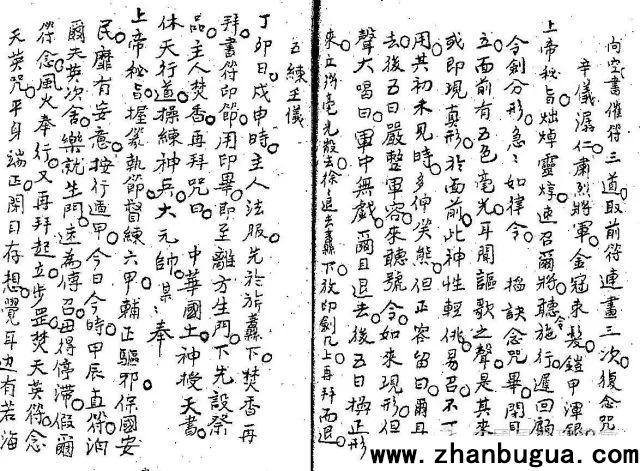 向空書催符三道取前符連畫三次復念咒
辛儀潺仁肅烈將軍金冠束髮鎧甲渾銀
上帝秘旨灿焯靈焞速召爾將聽令施行遲回顧
令劍分形急急如律令 掐訣念咒畢閉目
立面前有五色毫光耳聞謳歌之聲是其來
或即現真形於面前此神性輕佻易召不可
用其初未見時多伸笑態但正容留曰爾且
去後五日嚴整軍容來聽號令如來現形但
聲大唱曰軍中無戲爾且退去後五日換正形
來立漸毫光散去徐徐退去纛下放印劍几上再拜而退
五練主儀
丁卯日戊申時主人法服先於旂纛下焚香再
拜書符印節用印畢即至離方生門下先設祭
品主人焚香再拜咒曰 中華國土神授天書
休天行道操練神兵大元帥某某奉
上帝秘旨握篆執節督練六甲輔正驅邪保國安
民靡有妄意按行遁甲今日今時甲辰直符泊
爾天英次舍樂就生門速為傳召毋得停滯假爾
符念風火奉行又再拜起立步罡焚天英符念
天英咒平身端正閉目存想覺耳边有若海
www.zhanbugua.com